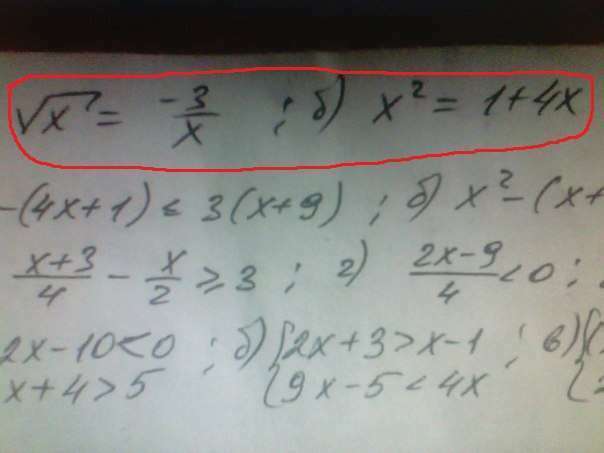 √x = -3/x ; б) x² = 1+4x
-(4x+1) ≤ 3(x+9) ; б) x² - (x+
(x+3)/4 - x/2 ≥ 3 ; г) (2x-9)/4 < 0 ;
2x-10<0 ; б) { 2x+3 > x-1 ; в) {
x+4 > 5 { 9x-5 < 4x {